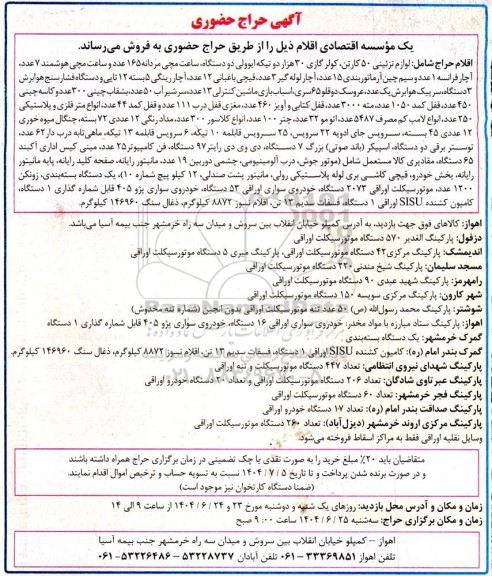 آگهی حراج حضوری
یک مؤسسه اقتصادی اقلام ذیل را از طریق حراج حضوری به فروش می‌رساند.
اقلام حراج شامل: لوازم تزئینی ۵۰ کارتن، کولر گازی ۳۰ هزار دو تیکه ایوولی دو دستگاه، ساعت مچی مردانه ۱۶۵ عدد و ساعت مچی هوشمند ۷ عدد،
آچار فرانسه ۱ عدد و سیم چین آرماتوربندی ۱۵ عدد، آچار لوله گیر ۳ عدد، قیچی باغبانی ۱۲ عدد، آچار رینگی ۵ بسته ۱۲ تایی و دستگاه فشار سنج هوا برش
۳ دستگاه، سرپیک هوابرش یک عدد، عروسک دوقلو ۶۵ سری، اسباب بازی ماشین کنترلی ۱۳ عدد، سرشیر آب ۵۰ عدد، بشقاب چینی ۳۰۰ عدد و کاسه چینی
۴۵۰ عدد، قفل کمد ۱۰۵۰ عدد، مته ۳۰۰۰ عدد، قفل کتابی و آویز ۴۶۰ عدد، مغزی قفل درب ۱۱۱ عدد و قفل کمد ۴۴ عدد، انواع متر فلزی و پلاستیکی
۲۵۰ عدد، انواع لامپ کم مصرف ۵۴۸۷ عدد، اتو مو ۳۲ عدد، چتر ۱۰۰ عدد، انواع کلاسور ۳۰۰ عدد، مداد رنگی ۱۲ عددی ۷۲ بسته، چنگال میوه خوری
۱۲ عددی ۴۵ بسته، سرویس جای ادویه ۲۲ سرویس، ۲۵ سرویس قابلمه ۱۰ تیکه، ۶ سرویس قابلمه ۱۳ تیکه، ماهی تابه درب دار ۶۲ عدد،
توستر برقی دو دستگاه، اسپیکر (باند صوتی) بزرگ ۷ دستگاه، دی وی دی رایتر ۹۷ دستگاه، فن کامپیوتر ۲۵ عدد، مینی کیس اداری آکبند
۶۵ دستگاه، مقادیری کالا مستعمل شامل (موتور جوش، درب آلومینیومی، چشمی دوربین ۱۹ عدد، مانیتور رایانه، صفحه کلید رایانه، پایه مانیتور
رایانه، پخش خودرو، قیچی کاشی بری لوله پلاستیکی رولی، مانیتور پشت صندلی، ۱۲ کیلو پیچ شماره ۱۰)، یک دستگاه بسته‌بندی، زونکن
۱۲۰۰ عدد، موتورسیکلت اوراقی ۲۰۷۳ دستگاه، خودروی سواری اوراقی ۵۳ دستگاه، خودروی سواری پژو ۴۰۵ قابل شماره گذاری ۱ دستگاه،
کامیون کشنده SISU اوراقی ۱ دستگاه، فسفات سدیم ۱۳ تن، اقلام نسوز ۸۸۷۲ کیلوگرم، ذغال سنگ ۱۴۶۹۶۰ کیلوگرم.
اهواز: کالاهای فوق جهت بازدید، به آدرس کمپلو خیابان انقلاب بین سروش و میدان سه راه خرمشهر جنب بیمه آسیا می‌باشد.
دزفول: پارکینگ الغدیر ۵۷۰ دستگاه موتورسیکلت اوراقی
اندیمشک: پارکینگ مرکزی ۴۲ دستگاه موتورسیکلت اوراقی، پارکینگ میری ۵ دستگاه موتورسیکلت اوراقی
مسجد سلیمان: پارکینگ شیخ مندنی ۲۲۰ دستگاه موتورسیکلت اوراقی
رامهرمز: پارکینگ شهید عبدی ۹۰ دستگاه موتورسیکلت اوراقی
شهر کارون: پارکینگ مرکزی سویسه ۱۵۰ دستگاه موتورسیکلت اوراقی
شوشتر: پارکینگ محمد رسول‌الله (ص) ۵۰ عدد تنه موتورسیکلت اوراقی بدون انجین (شماره تنه مخدوش)
اهواز: پارکینگ ستاد مبارزه با مواد مخدر: خودروی سواری اوراقی ۱۶ دستگاه، خودروی سواری پژو ۴۰۵ قابل شماره گذاری ۱ دستگاه
گمرک خرمشهر: یک دستگاه بسته‌بندی
گمرک بندر امام (ره): کامیون کشنده SISU اوراقی ۱ دستگاه، فسفات سدیم ۱۳ تن، اقلام نسوز ۸۸۷۲ کیلوگرم، ذغال سنگ ۱۴۶۹۶۰ کیلوگرم.
پارکینگ شهدای نیروی انتظامی: تعداد ۴۴۷ دستگاه موتورسیکلت و تنه اوراقی
پارکینگ عبر تاوی شادگان: تعداد ۲۰۶ دستگاه موتورسیکلت اوراقی و تعداد ۲۰ دستگاه خودرو اوراقی
پارکینگ فجر خرمشهر: تعداد ۶۰ دستگاه موتورسیکلت اوراقی
پارکینگ صداقت بندر امام (ره): تعداد ۱۷ دستگاه خودرو اوراقی
پارکینگ مرکزی اروند خرمشهر (دیزل‌آباد): تعداد ۲۶۰ دستگاه موتورسیکلت اوراقی
وسایل نقلیه اوراقی فقط به مراکز اسقاط فروخته می‌شود.
متقاضیان باید ۲۰٪ مبلغ خرید را به صورت نقدی یا چک تضمینی در زمان برگزاری حراج همراه داشته باشند
و در صورت برنده شدن پرداخت و تا تاریخ ۱۴۰۴ / ۷ / ۵ نسبت به تسویه حساب و ترخیص اموال اقدام نمایند.
(ضمنا دستگاه کارتخوان نیز موجود است)
زمان و مکان و آدرس محل بازدید: روزهای یک شنبه و دوشنبه مورخ ۲۳ و ۲۴ / ۶ / ۱۴۰۴ از ساعت ۹ الی ۱۴
زمان و مکان برگزاری حراج: سه‌شنبه ۲۵ / ۶ / ۱۴۰۴ ساعت ۹:۰۰ صبح
اهواز – کمپلو خیابان انقلاب بین سروش و میدان سه راه خرمشهر جنب بیمه آسیا
تلفن اهواز ۳۳۳۶۹۸۵۱–۰۶۱ تلفن آبادان ۵۳۲۲۸۷۳۷–۵۳۲۲۶۴۸۶–۰۶۱